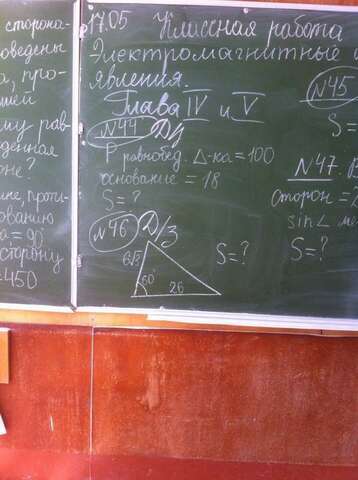 сторона-
оведены
а, про-
шей
му рав-
денная
оне?
ине, проти-
ованию
а = 90°
сторону
=450
17.05 Классная работа
Электромагнитные
явления.
Глава IV и V
№44 Д/з
P равнобед. Δ-ка = 100
основание = 18
S = ?
№46 Д/з
6√3
60°
26
S = ?
№45
S =
№47
сторон =
sin∠
S = ?